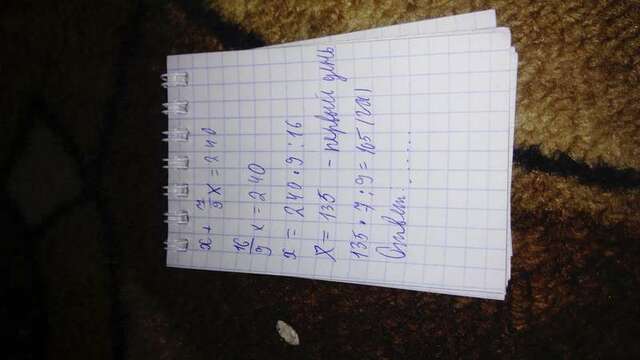 x + 7/9 x = 240
16/9 x = 240
x = 240 · 9 : 16
x = 135 - первый день
135 · 7 : 9 = 105 (га)
Ответ: .......